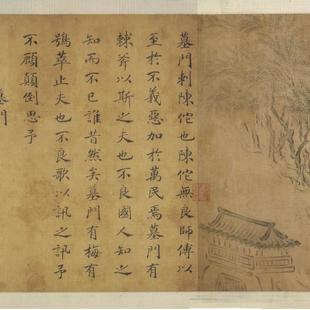 墓門刺陳佗也陳佗無良師傅以
至於不義惡加於萬民焉墓門有
棘斧以斯之夫也不良國人知之
知而不已誰昔然矣墓門有梅有
鴞萃止夫也不良歌以訊之訊予
不顧顛倒思予
墓門